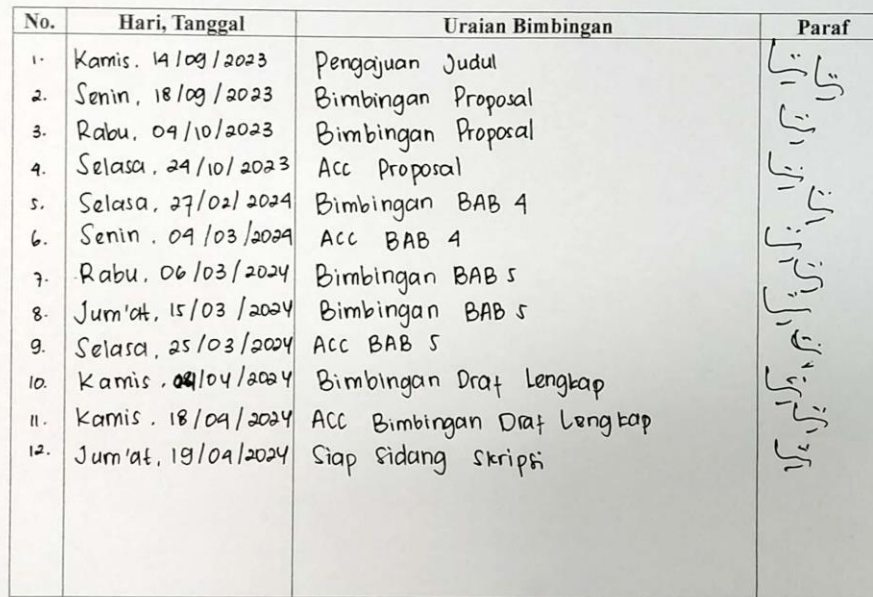 No. Hari, Tanggal Uraian Bimbingan Paraf
1. Kamis. 14/09/2023 Pengajuan Judul
2. Senin, 18/09/2023 Bimbingan Proposal
3. Rabu, 04/10/2023 Bimbingan Proposal
4. Selasa, 24/10/2023 Acc Proposal
5. Selasa, 27/02/2024 Bimbingan BAB 4
6. Senin. 04/03/2024 Acc BAB 4
7. Rabu, 06/03/2024 Bimbingan BAB 5
8. Jum'at, 15/03/2024 Bimbingan BAB 5
9. Selasa, 25/03/2024 Acc BAB 5
10. Kamis. Bimbingan Draf Lengkap
11. Kamis. 18/04/2024 ACC Bimbingan Draf Lengkap
12. Jum'at, 19/04/2024 Siap Sidang Skripsi